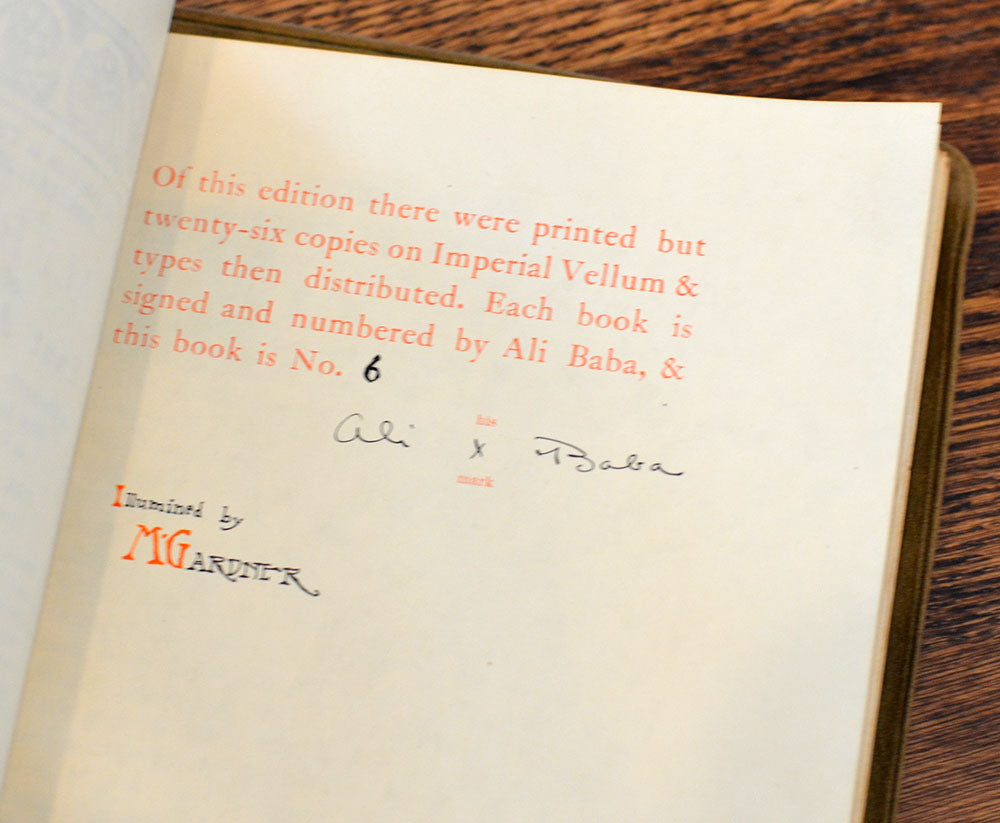 Of this edition there were printed but
twenty-six copies on Imperial Vellum &
types then distributed. Each book is
signed and numbered by Ali Baba, &
this book is No. 6
his
Ali x Baba
mark
Illumined by
M·GARDNER